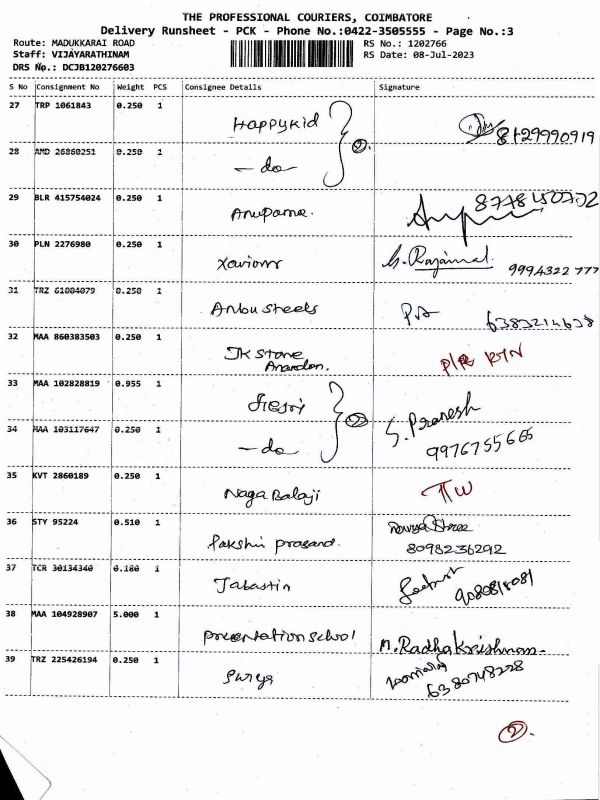 THE PROFESSIONAL COURIERS, COIMBATORE
Delivery Runsheet - PCK - Phone No.:0422-3505555 - Page No.:3
Route: MADUKKARAI ROAD RS No.: 1202766
Staff: VIJAYARATHINAM RS Date: 08-Jul-2023
DRS No.: DCJB120276603
S No Consignment No Weight PCS Consignee Details Signature
27 TRP 1061843 0.250 1 Happykid 8129990919
28 AMD 26860251 0.250 1 - do ②.
29 BLR 415754024 0.250 1 Anupama.
30 PLN 2276980 0.250 1 Xaviour S. Rajamal 9994322777
31 TRZ 61004079 0.250 1 Anbu steels 6383214638
32 MAA 860383503 0.250 1 JK Stone
33 MAA 102828819 0.955 1 S. Pranesh
34 MAA 103117647 0.250 1 - do ② 9976755665
35 KVT 2860189 0.250 1 Naga Balaji
36 STY 95224 0.510 1 Lakshmi prasand. 8098236292
37 TCR 30134340 0.180 1 Jabastin
38 MAA 104928907 5.000 1 presentation school M. Radhakrishnan
39 TRZ 225426194 0.250 1 Surya 6380748228
②.